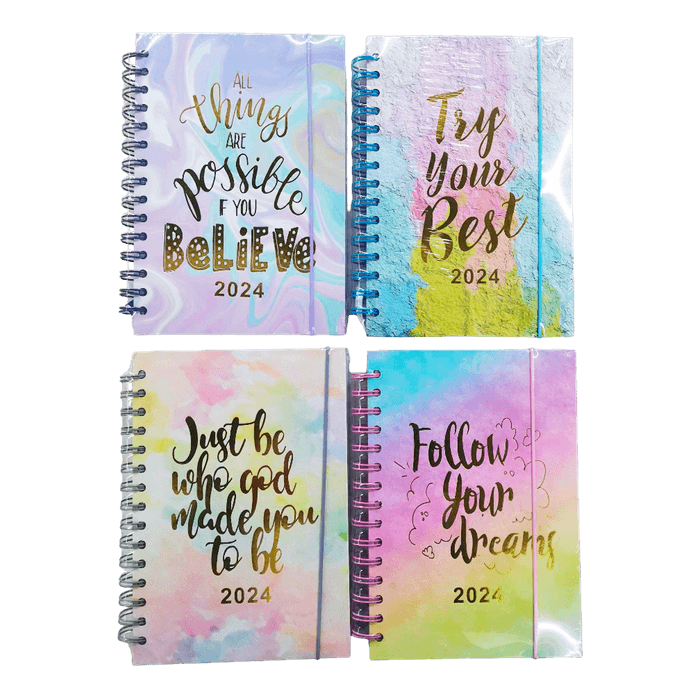 ALL
things
ARE
possible
IF YOU
BELIEVE
2024
Try
Your
Best
2024
Just be
who god
made you
to be
2024
Follow
your
dreams
2024